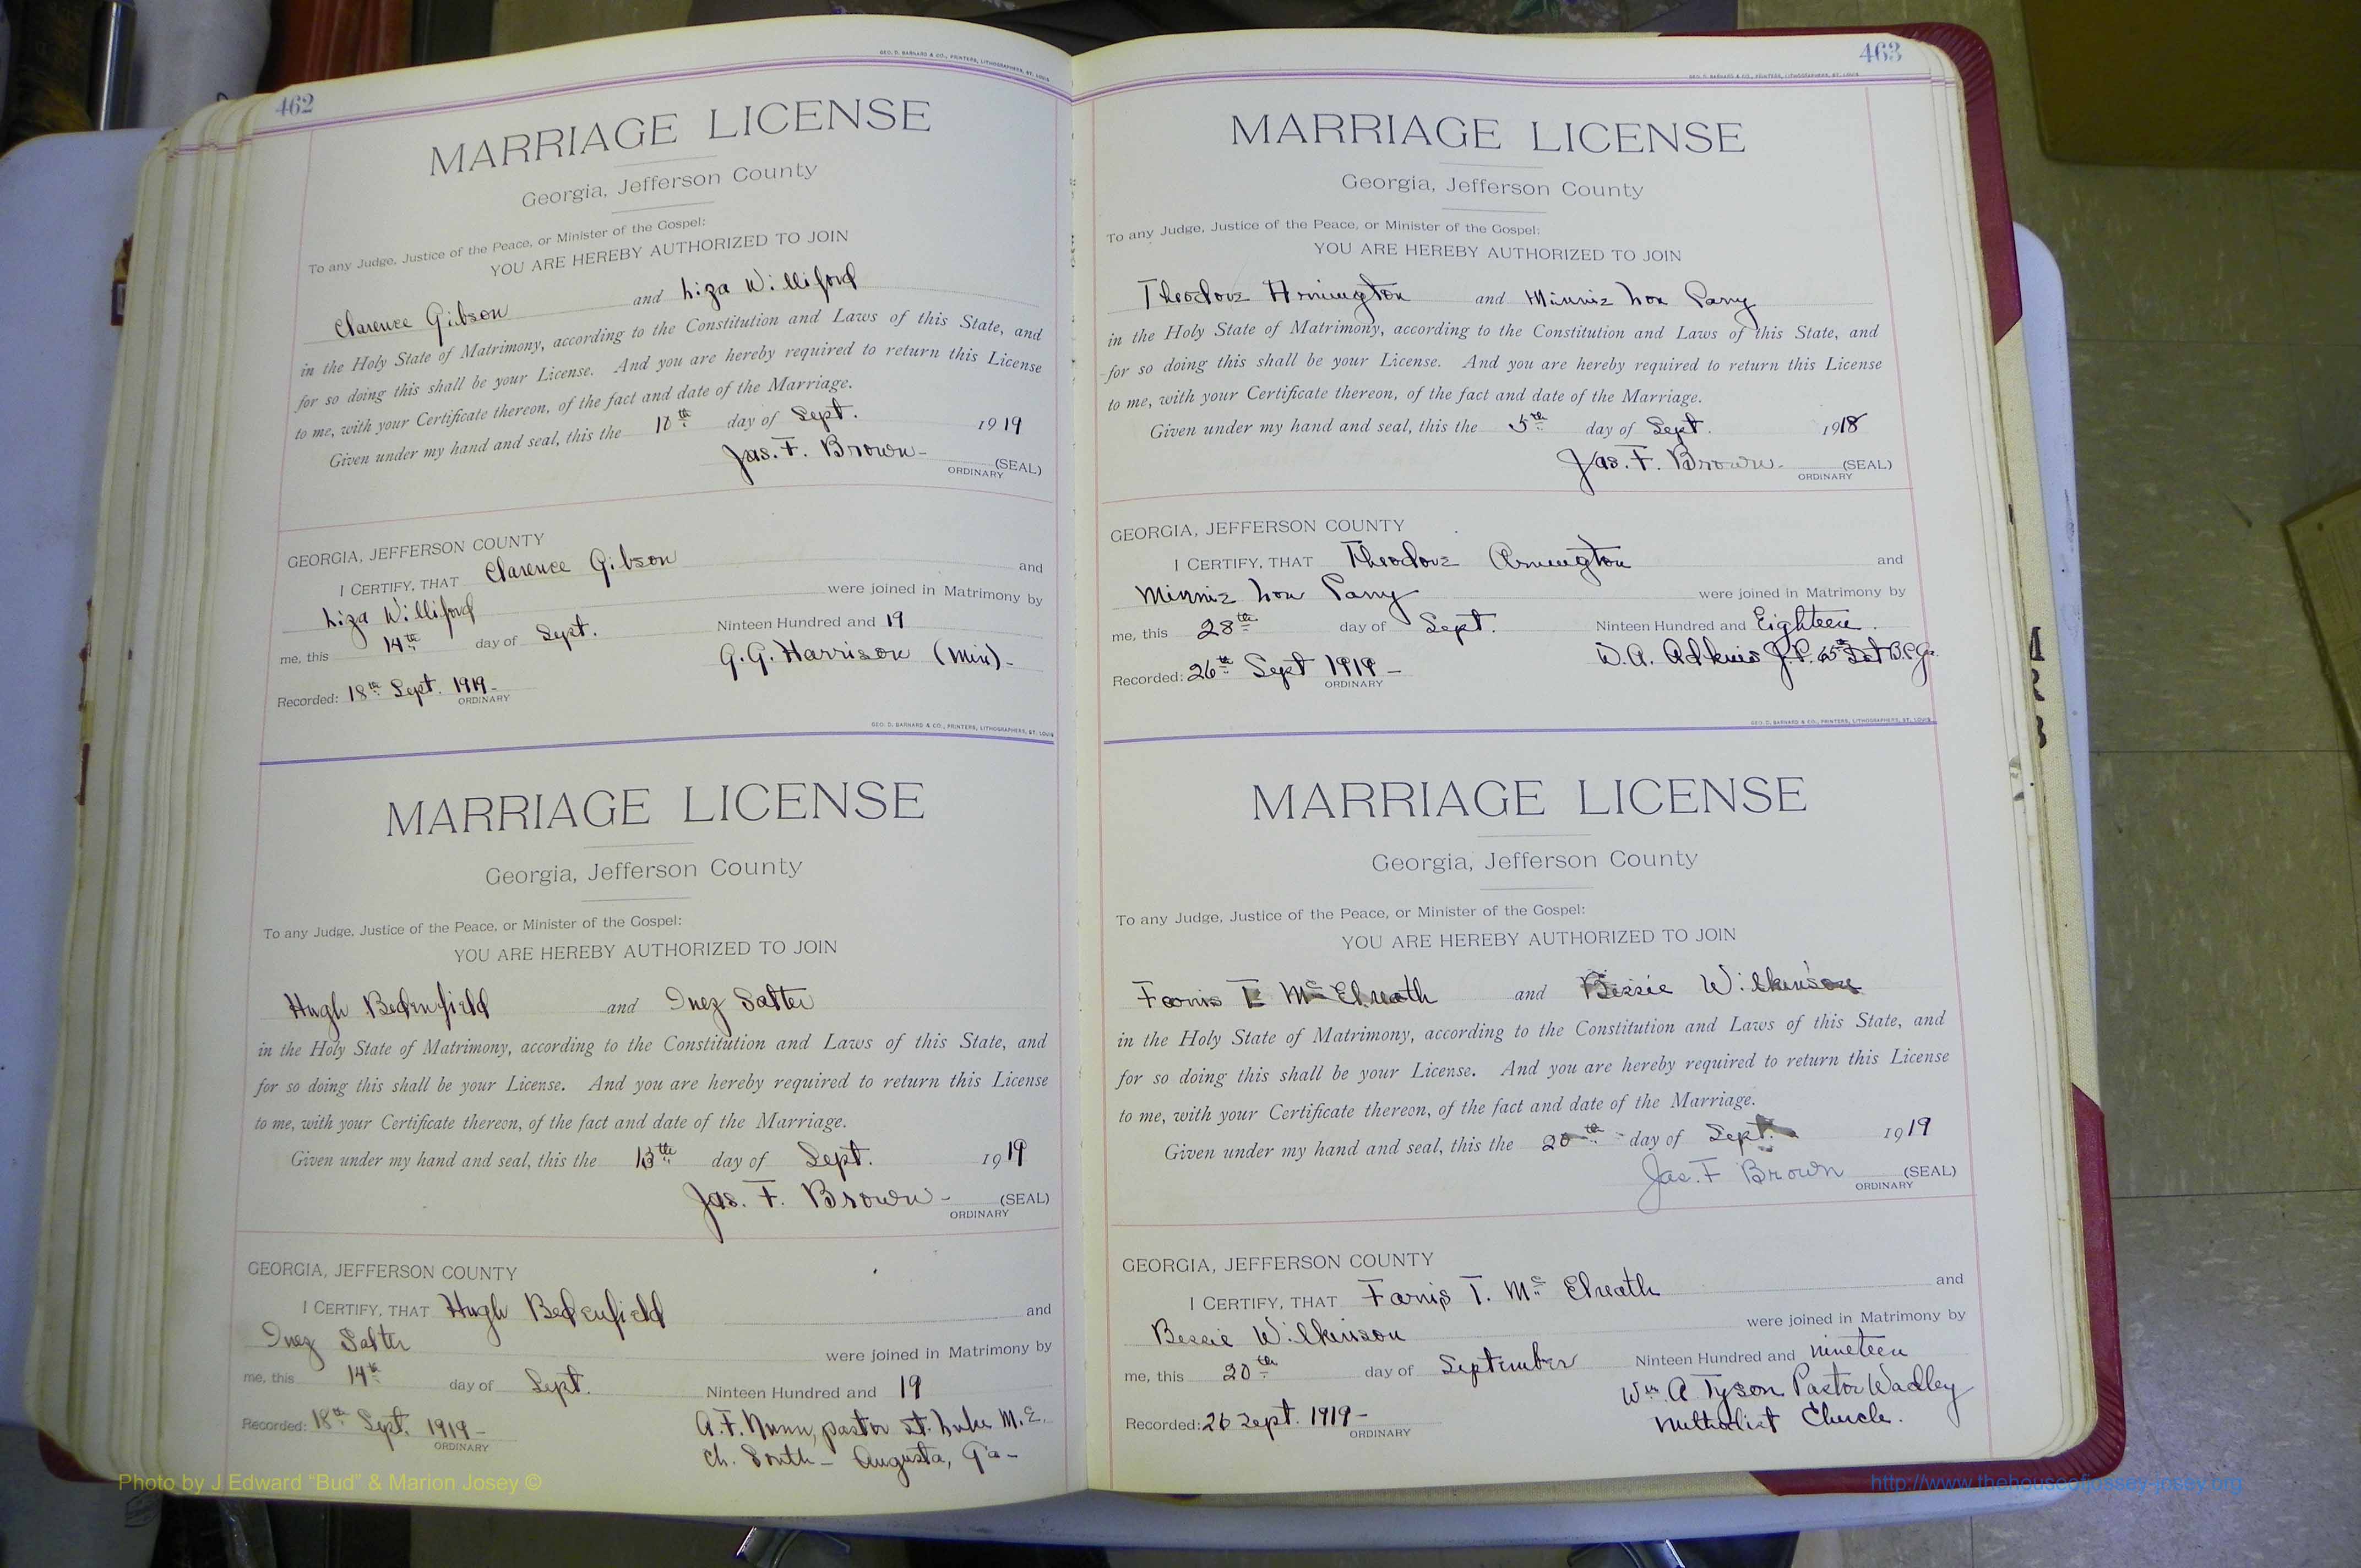 462
GEO. D. BARNARD & CO., PRINTERS, LITHOGRAPHERS, ST. LOUIS
MARRIAGE LICENSE
Georgia, Jefferson County
To any Judge, Justice of the Peace, or Minister of the Gospel:
YOU ARE HEREBY AUTHORIZED TO JOIN
Clarence Gibson and Liza Williford
in the Holy State of Matrimony, according to the Constitution and Laws of this State, and
for so doing this shall be your License. And you are hereby required to return this License
to me, with your Certificate thereon, of the fact and date of the Marriage.
Given under my hand and seal, this the day of Sept. 1919
Jas. F. Brown- (SEAL)
ORDINARY
GEORGIA, JEFFERSON COUNTY
I CERTIFY, THAT Clarence Gibson and
Liza Williford were joined in Matrimony by
me, this 14th day of Sept. Ninteen Hundred and 19
G.G. Harrison (Min)-
Recorded: 18th Sept. 1919-
ORDINARY
GEO. D. BARNARD & CO., PRINTERS, LITHOGRAPHERS, ST. LOUIS
MARRIAGE LICENSE
Georgia, Jefferson County
To any Judge, Justice of the Peace, or Minister of the Gospel:
YOU ARE HEREBY AUTHORIZED TO JOIN
Hugh Bedenfield and Inez Salter
in the Holy State of Matrimony, according to the Constitution and Laws of this State, and
for so doing this shall be your License. And you are hereby required to return this License
to me, with your Certificate thereon, of the fact and date of the Marriage.
Given under my hand and seal, this the 13th day of Sept. 1919
Jas. F. Brown- (SEAL)
ORDINARY
GEORGIA, JEFFERSON COUNTY
I CERTIFY, THAT Hugh Bedenfield and
Inez Salter were joined in Matrimony by
me, this 14th day of Sept. Ninteen Hundred and 19
Recorded: 18th Sept. 1919- A.F. Nunn, pastor St. Luke M.E.
ORDINARY
Ch. South- Augusta, Ga-
463
GEO. D. BARNARD & CO., PRINTERS, LITHOGRAPHERS, ST. LOUIS
MARRIAGE LICENSE
Georgia, Jefferson County
To any Judge, Justice of the Peace, or Minister of the Gospel:
YOU ARE HEREBY AUTHORIZED TO JOIN
Theodore and Minnie Lou
in the Holy State of Matrimony, according to the Constitution and Laws of this State, and
for so doing this shall be your License. And you are hereby required to return this License
to me, with your Certificate thereon, of the fact and date of the Marriage.
Given under my hand and seal, this the 5th day of Sept. 1918
Jas. F. Brown- (SEAL)
ORDINARY
GEORGIA, JEFFERSON COUNTY
I CERTIFY, THAT Theodore and
Minnie Lou were joined in Matrimony by
me, this 28th day of Sept. Ninteen Hundred and Eighteen.
W.A. Adkins J.P.
Recorded: 26th Sept 1919-
ORDINARY
GEO. D. BARNARD & CO., PRINTERS, LITHOGRAPHERS, ST. LOUIS
MARRIAGE LICENSE
Georgia, Jefferson County
To any Judge, Justice of the Peace, or Minister of the Gospel:
YOU ARE HEREBY AUTHORIZED TO JOIN
T Mc Elreath and Bessie Wilkinson
in the Holy State of Matrimony, according to the Constitution and Laws of this State, and
for so doing this shall be your License. And you are hereby required to return this License
to me, with your Certificate thereon, of the fact and date of the Marriage.
Given under my hand and seal, this the 20th day of Sept. 1919
Jas. F Brown (SEAL)
ORDINARY
GEORGIA, JEFFERSON COUNTY
I CERTIFY, THAT T. Mc Elreath and
Bessie Wilkinson were joined in Matrimony by
me, this 20th day of September Ninteen Hundred and nineteen
Wm A Tyson Pastor Wadley
Recorded: 26 Sept. 1919- Methodist Church.
ORDINARY
Photo by J Edward "Bud" & Marion Josey ©
http://www.thehouseofjossey-josey.org